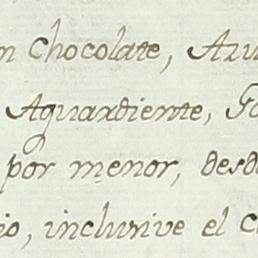 n chocolate, Azu
Aguardiente,
por menor, desd
io, inclusive el c